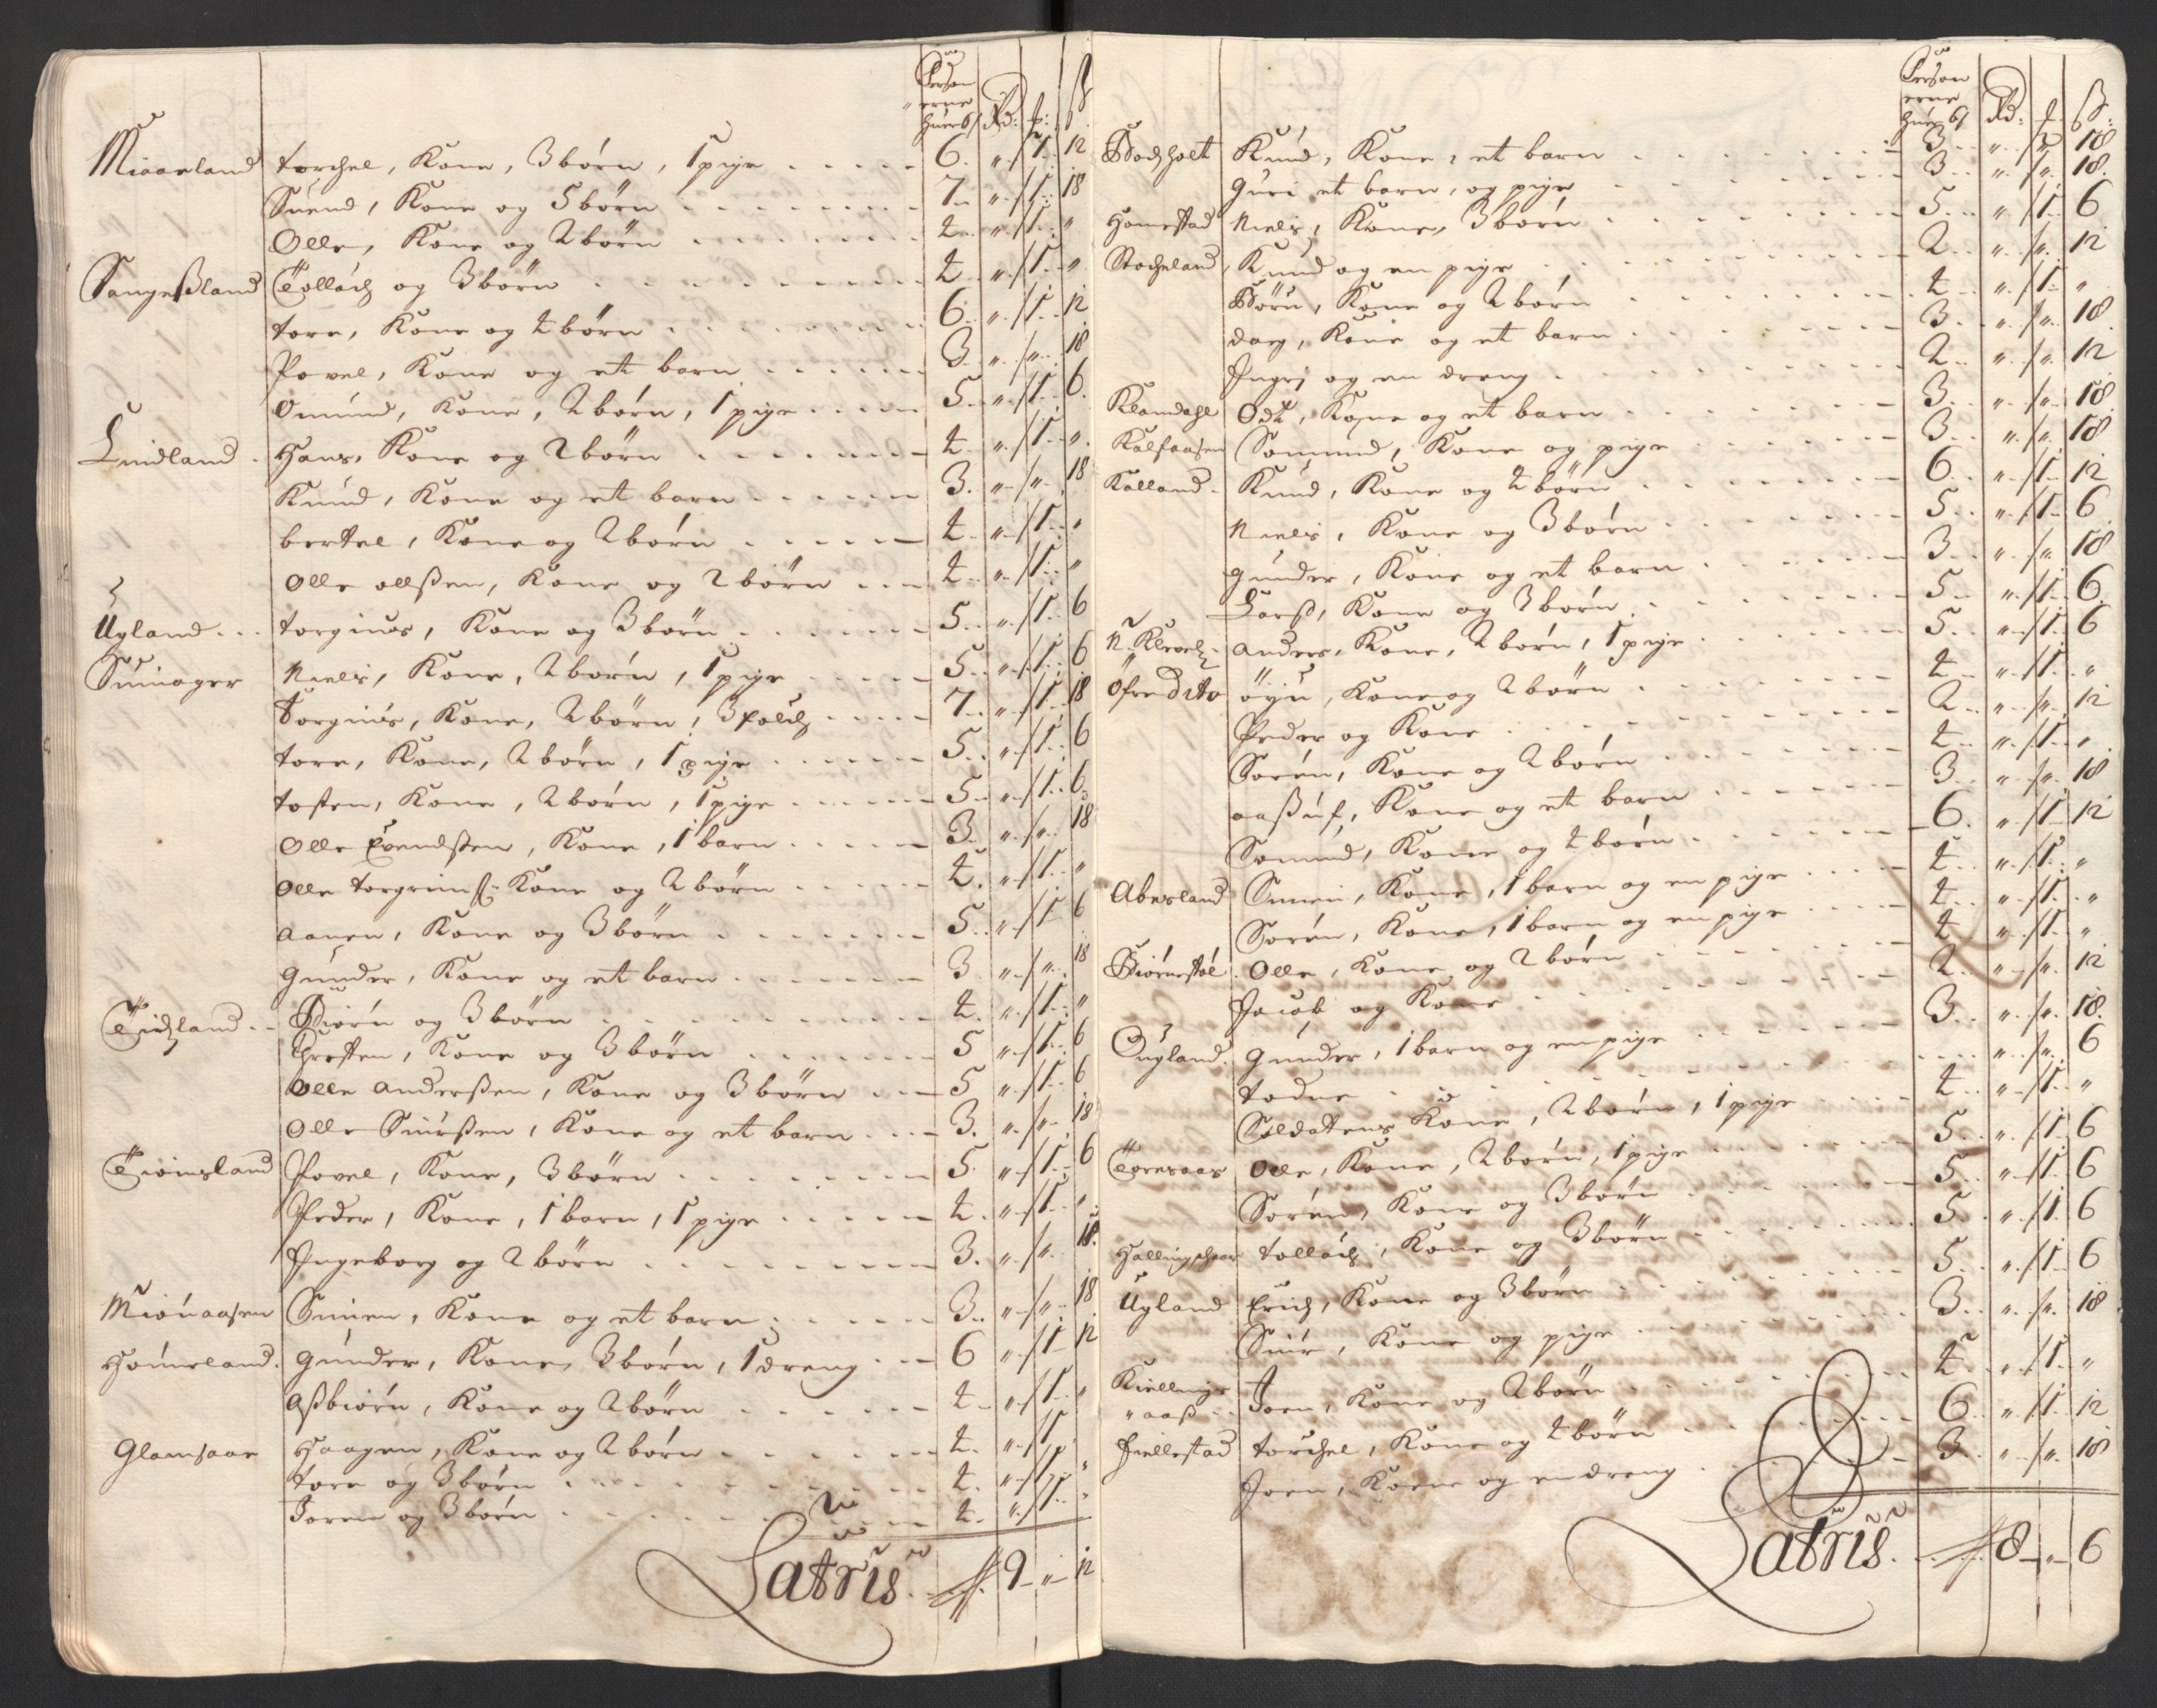 Person
erne
Rd: ß
Miaaeland Torchel, Kone, 3 børn, 1 pige 6. „ / 1. 12
Suend, Kone og 5 børn 7 „ / 1. 18
Olle, Kone og 2 børn 4 „ / 1. „
Sangeßland Tollach og 3 børn 4 „ / 1. „
tore, Kone og 4 børn 6. „ / 1. 12
Povel, Kone og et barn 3. „ / „ 18
Omund, Kone, 2 børn, 1 pige 5. „ / 1. 6
Lindland Hans, Kone og 2 børn 4 „ / 1. „
Knud, Kone og et barn 3. „ / „ 18
bertel, Kone og 2 børn 4 „ / 1. „
Olle ollßen, Kone og 2 børn 4 „ / 1. „
Ugland Torgiuls, Kone og 3 børn 5. „ / 1. 6
Niels, Kone, 2 børn, 1 pige 5. „ / 1. 6
Torgius, Kone, 2 børn, 3 folch 7. „ / 1. 18
tore, Kone, 2 børn, 1 pige 5. „ / 1. 6
tosten, Kone, 2 børn, 1 pige 5. „ / 1. 6
Olle Evendsten, Kone, 1 barn 3. „ / „ 18
Olle Torgrims: Kone og 2 børn 4. „ / 1. „
Aanen, Kone og 3 børn 5. „ / 1 6
Gunder, Kone og et barn 3. „ / „ 18
Biørn og 3 børn 4. „ / 1. „
Chresten, Kone og 3 børn 5 „ / 1. 6
Olle Anderßen, Kone og 3 børn 5 „ / 1. 6
Olle Siurßen, Kone og et barn 3. „ / „ 18
Tiomsland Povel, Kone, 3 børn 5. „ / 1. 6
Peder, Kone, 1 barn, 1 pige 4. „ / 1. „
Ingeborg og 2 børn 3. „ / „ 18.
Miønaasen Simen, Kone og et barn 3. „ / „ 18
Gunder, Kone, 3 børn, 1 dreng 6 „ / 1 12
Aßbiørn, Kone og 2 børn 4 „ / 1. „
Glamsaar Haagen, Kone og 2 børn 4. „ / 1 „
Tore og 3 børn 4. „ / 1. „
Joren og 3 børn 4. „ / 1. „
Latris 9 „ 12
Person
erne
Rd: ß:
Bochholt Knud, Kone, et barn 3. „ / „ 18
Guri et barn, og pige 3. „ / „ 18.
Homestad Niels, Kone, 3 børn 5. „ / 1. 6
Stocheland Knud og en pige 2. „ / „ 12
Børu, Kone og 2 børn 4. „ / 1. „
dag, Kone og et barn 3. „ / „ 18
Ingri og en dreng 2. „ / „ 12
Klomdahl Odt, Kone og et barn 3. „ / „ 18
Kalfaasen Somund, Kone og pige 3. „ / „ 18
Kalland Knud, Kone og 4 børn 6. „ / 1. 12
Niels, Kone og 3 børn 5. „ / 1. 6
Gunder, Kone og et barn 3. „ / „ 18
Larß, Kone og 3 børn 5. „ / 1. 6
N. Anders, Kone, 2 børn, 1 pige 5. „ / 1. 6
Øfre Dito Øyu, Kone og 2 børn 4 „ / 1. „
Peder og Kone 2. „ / „ 12
Sørén, Kone og 2 børn 4. „ / 1. „
aaßuf, Kone og et barn 3. „ / „ 18
Somund, Kone og 4 børn 6. „ / 1 12
Abesland Simen, Kone, 1 barn og en pige 4. „ / 1. „
Sørén, Kone, 1 barn og en pige 4. „ / 1. „
Biørnestøl Olle, Kone og 2 børn 4 „ / 1. „
Jacob og Kone 2. „ / „ 12
Øygland Gunder, 1 barn og en pige 3. „ / „ 18.
„ / „ 6
Soldatens Kone, 2 børn, 1 pige 4. „ / 1. „
Toresaas Olle, Kone, 2 børn, 1 pige 5. „ / 1. 6
Sørén, Kone og 3 børn 5. „ / 1. 6
Tollach, Kone og 3 børn 5. „ / 1. 6
Ugland Erich, Kone og 3 børn 5. „ / 1. 6
Siur, Kone og pige 3. „ / „ 18
Joen, Kone og 2 børn 4. „ / 1. „
„ aaß
Fiellestad Torchel, Kone og 4 børn 6. „ / 1. 12
Joen, Kone og en dreng 3. „ / „ 18
Latris 8 „ 6